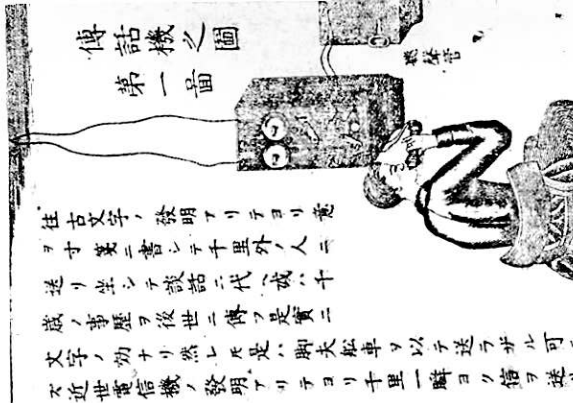 傳話機之圖
第一啚
徃古文字ノ發明アリテヨリ意
ヲ寸箋ニ書シテ千里外ノ人ニ
送リ坐シテ談話ニ代ヘ或ハ千
歳ノ事歴ヲ後世ニ傳フ是實ニ
文字ノ効ナリ然レ𪜈是ハ脚夫舩車ヲ以テ送ラザル可
ズ近世電信機ノ發明アリテヨリ千里一瞬ヨク信ヲ送